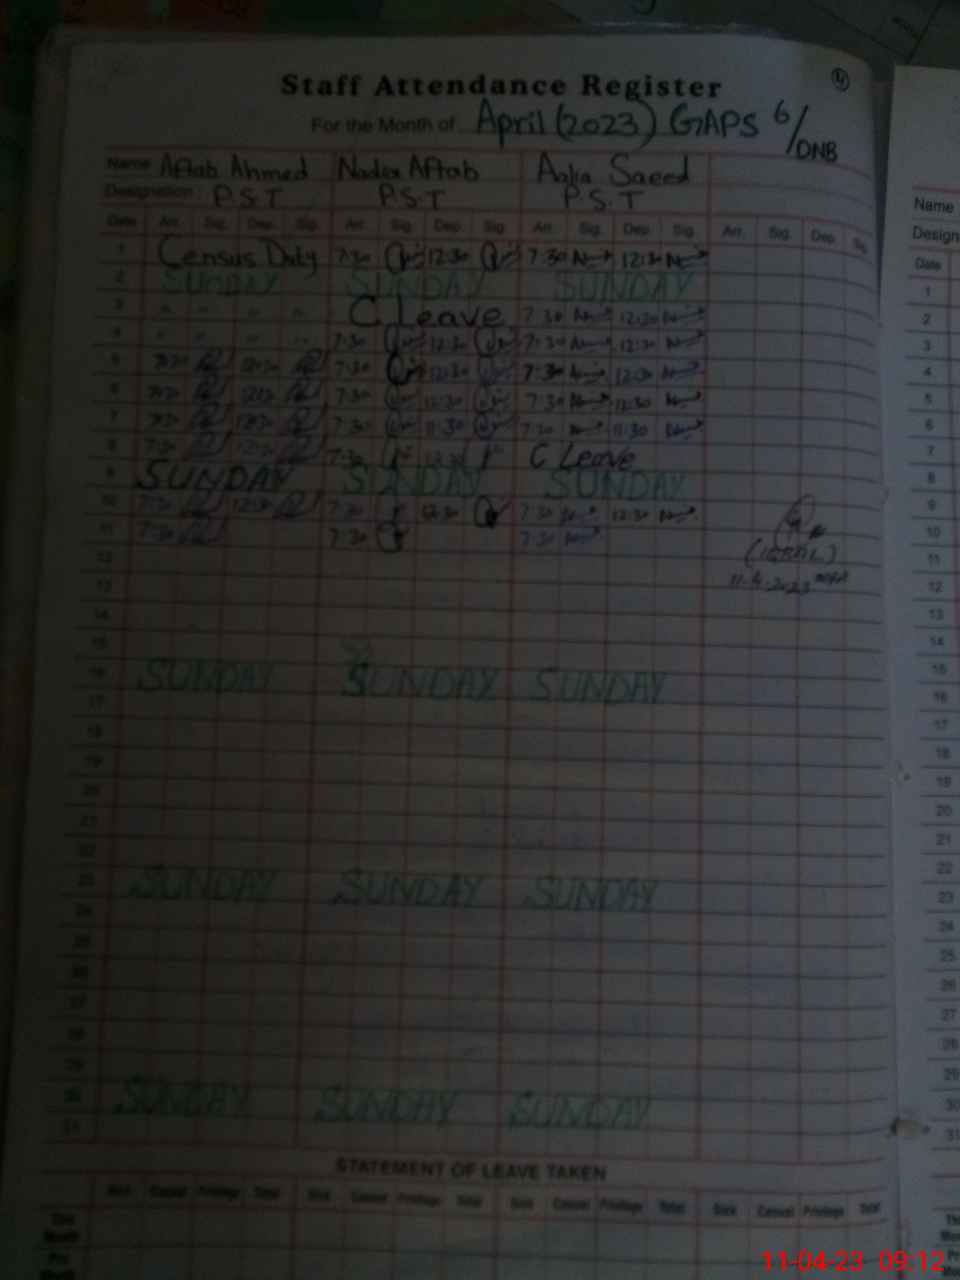 4
Staff Attendance Register
For the Month of April (2023) GAPS 6/DNB
Name Aftab Ahmed Nadia Aftab Aalia Saeed
Designation P.S.T P.S.T P.S.T
Date Arr. Sig. Dep. Sig. Arr. Sig. Dep. Sig. Arr. Sig. Dep. Sig. Arr. Sig. Dep. Sig.
1 Census Duty 7:30 12:30 7:30 12:30
2 SUNDAY SUNDAY SUNDAY
3 " " " " C Leave 7:30 12:30
4 " " " " 7:30 12:30 7:30 12:30
5 7:30 12:30 7:30 12:30 7:30 12:30
6 7:30 12:30 7:30 12:30 7:30 12:30
7 7:30 7:30 11:30 7:30 11:30
8 7:30 12:30 7:30 12:30 C Leave
9 SUNDAY SUNDAY SUNDAY
10 7:30 12:30 7:30 12:30 7:30 12:30
11 7:30 7:30 7:30
12
11-4-2023
13
14
15
16 SUNDAY SUNDAY SUNDAY
17
18
19
20
21
22
23 SUNDAY SUNDAY SUNDAY
24
25
26
27
28
29
30 SUNDAY SUNDAY SUNDAY
31
STATEMENT OF LEAVE TAKEN
Sick Casual Privilege Total Sick Casual Privilege Total Sick Casual Privilege Total Sick Casual Privilege Total
This Month
Pre Month
Name
Design
Date
1
2
3
4
5
6
7
8
9
10
11
12
13
14
15
16
17
18
19
20
21
22
23
24
25
26
27
28
29
30
31
11-04-23 09:12